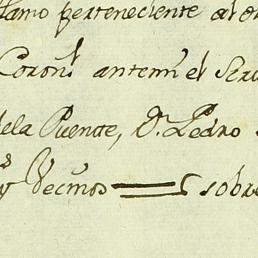 llamo perteneciente al
Coronl antemi el
dela Puente, D. Pedro
y Decmos = sobre